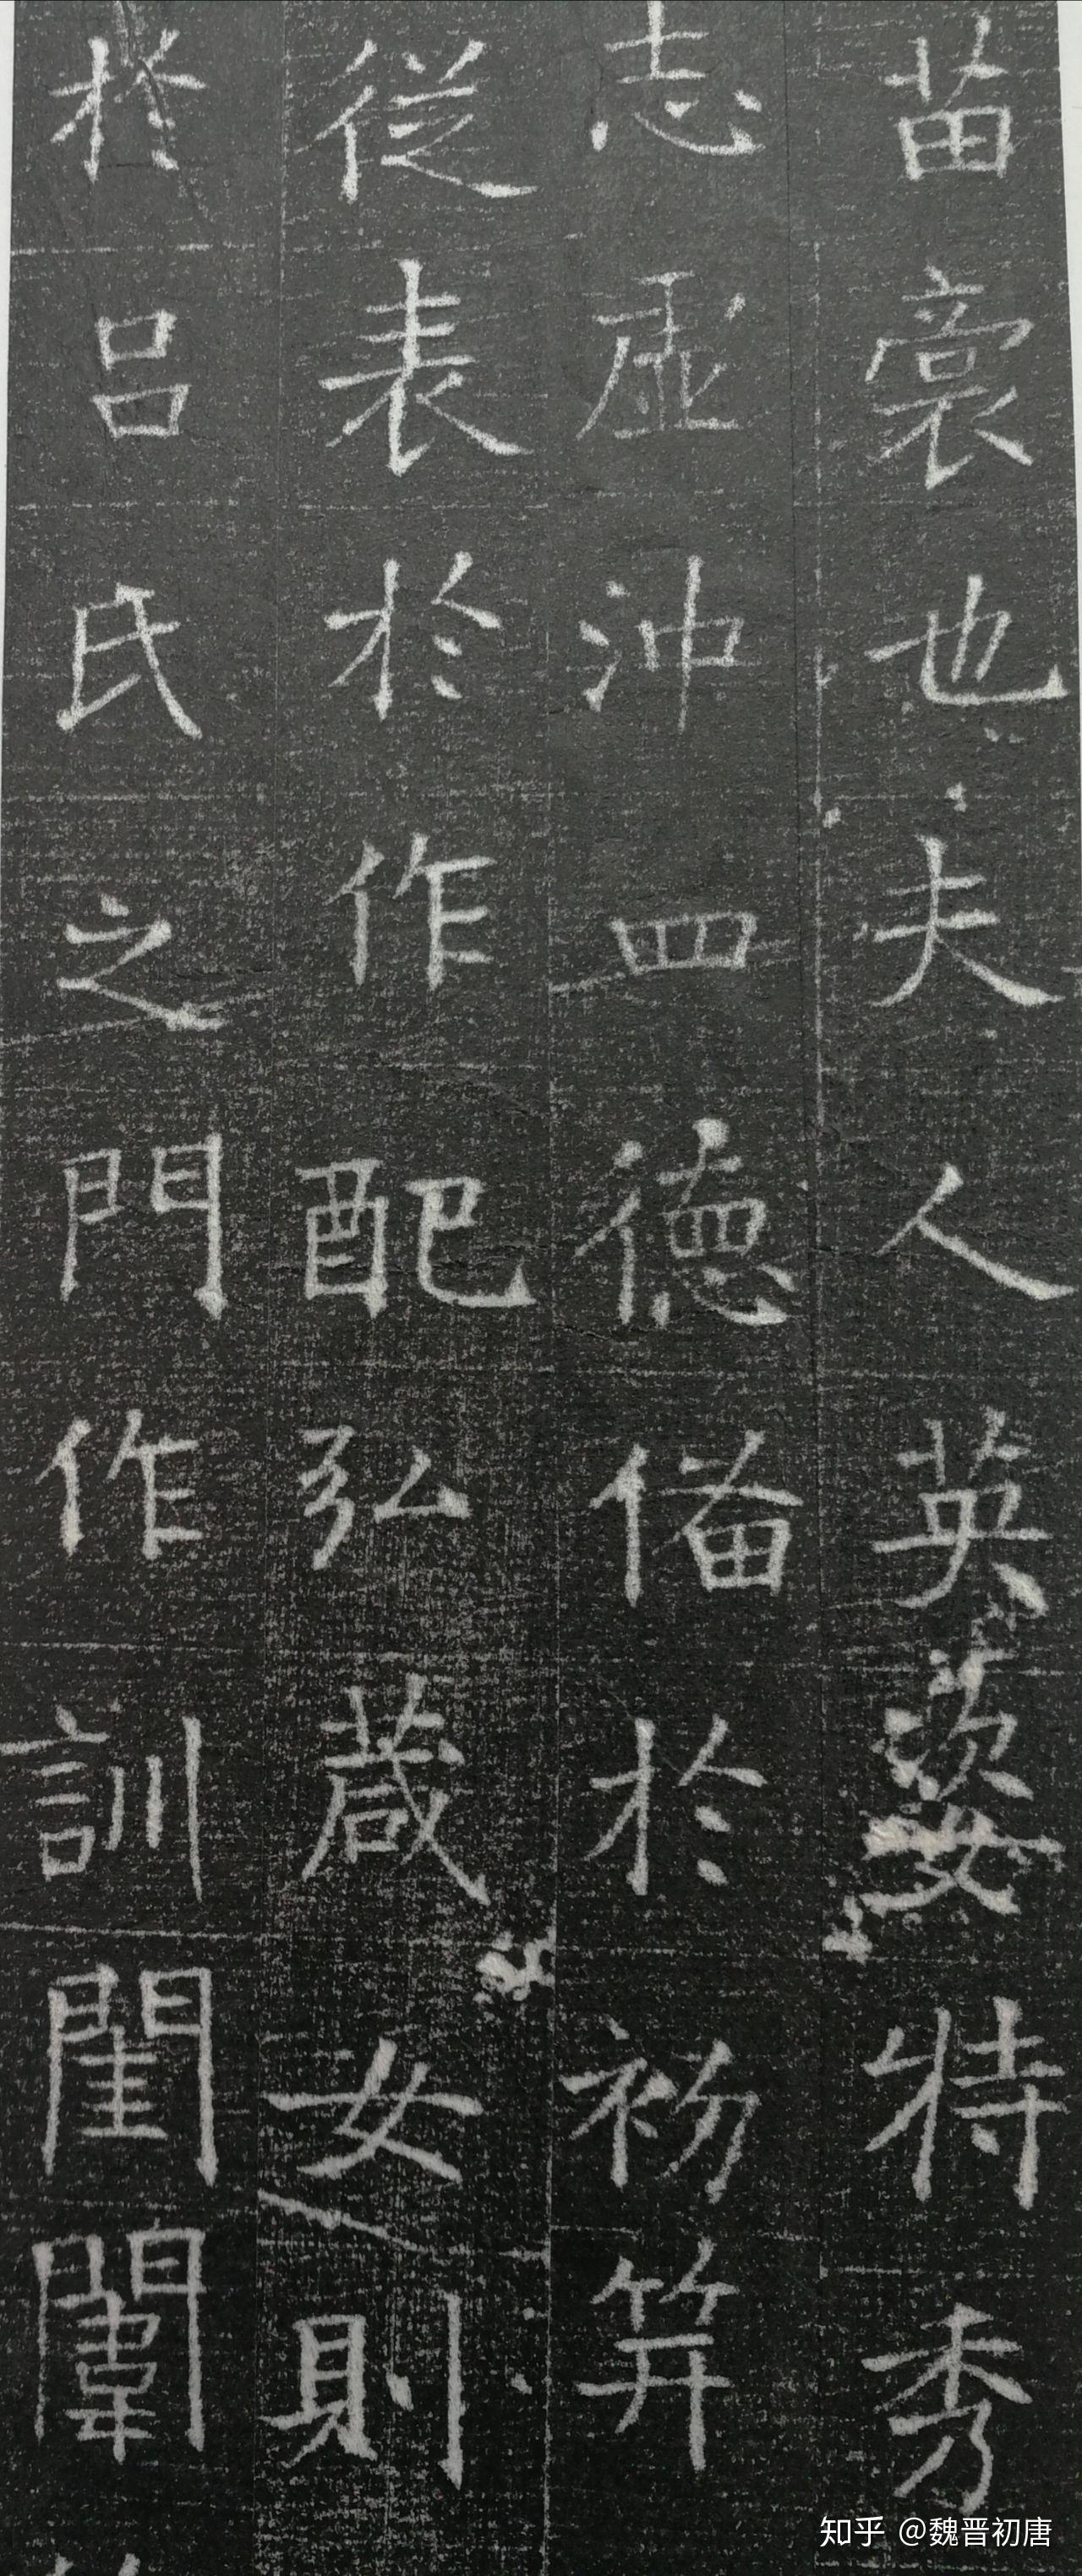 苗裔也夫人英姿特秀
志虛沖四德俻於初笄
從表於作配弘葴女則
於呂氏之門作訓閨闈
知乎 @魏晋初唐